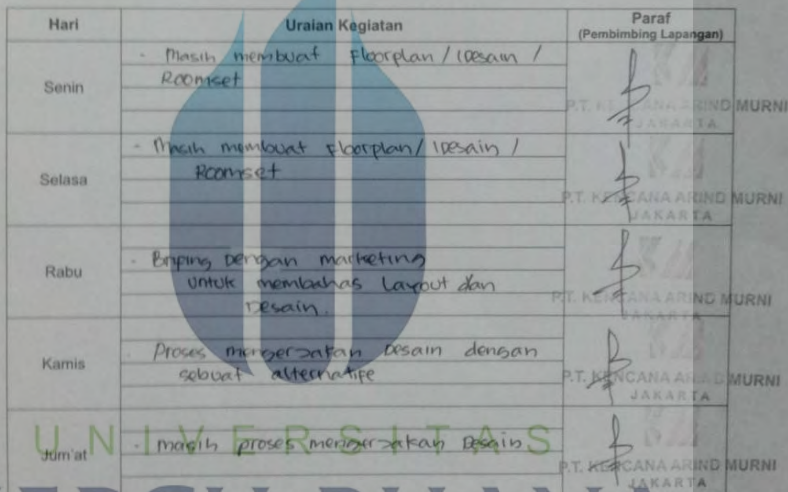 Hari Uraian Kegiatan Paraf
(Pembimbing Lapangan)
Senin
- Masih membuat Floorplan / Desain /
Roomset
P.T. KENCANA ARIND MURNI
JAKARTA
Selasa
- Masih membuat floorplan / Desain /
Roomset
P.T. KENCANA ARIND MURNI
JAKARTA
Rabu
- Briping Dengan marketing
untuk membahas Layout dan
Desain.
P.T. KENCANA ARIND MURNI
JAKARTA
Kamis
Proses mengerjakan Desain dengan
sebuat alternatife
P.T. KENCANA ARIND MURNI
JAKARTA
Jum'at
- masih proses mengerjakan Desain.
P.T. KENCANA ARIND MURNI
JAKARTA
UNIVERSITAS